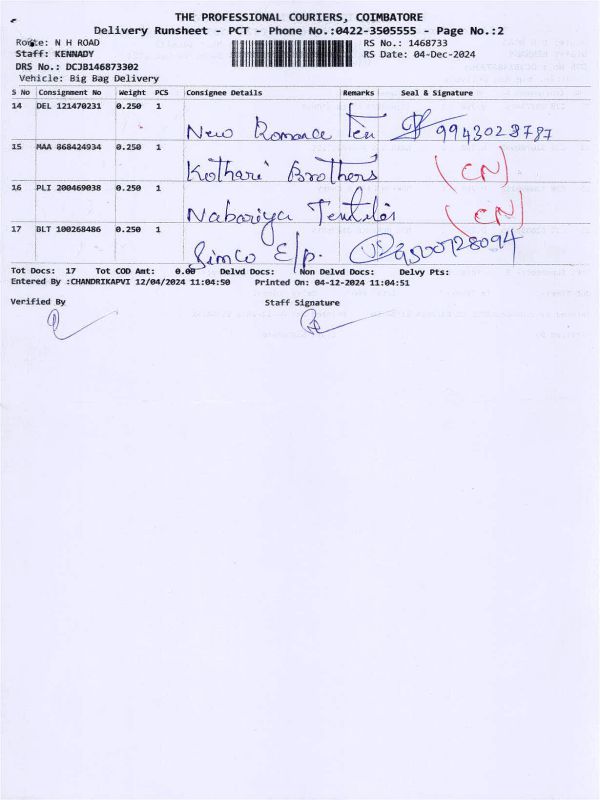 THE PROFESSIONAL COURIERS, COIMBATORE
Delivery Runsheet - PCT - Phone No.:0422-3505555 - Page No.:2
Route: N H ROAD RS No.: 1468733
Staff: KENNADY RS Date: 04-Dec-2024
DRS No.: DCJB146873302
Vehicle: Big Bag Delivery
S No Consignment No Weight PCS Consignee Details Remarks Seal & Signature
14 DEL 121470231 0.250 1
New Romance Tex 9943028787
15 MAA 868424934 0.250 1
Kothari Brothers (CN)
16 PLI 200469038 0.250 1
Nabariya Textiles (CN)
17 BLT 100268486 0.250 1
Simco E/p. 9500728094
Tot Docs: 17 Tot COD Amt: 0.00 Delvd Docs: Non Delvd Docs: Delvy Pts:
Entered By :CHANDRIKAPVI 12/04/2024 11:04:50 Printed On: 04-12-2024 11:04:51
Verified By Staff Signature